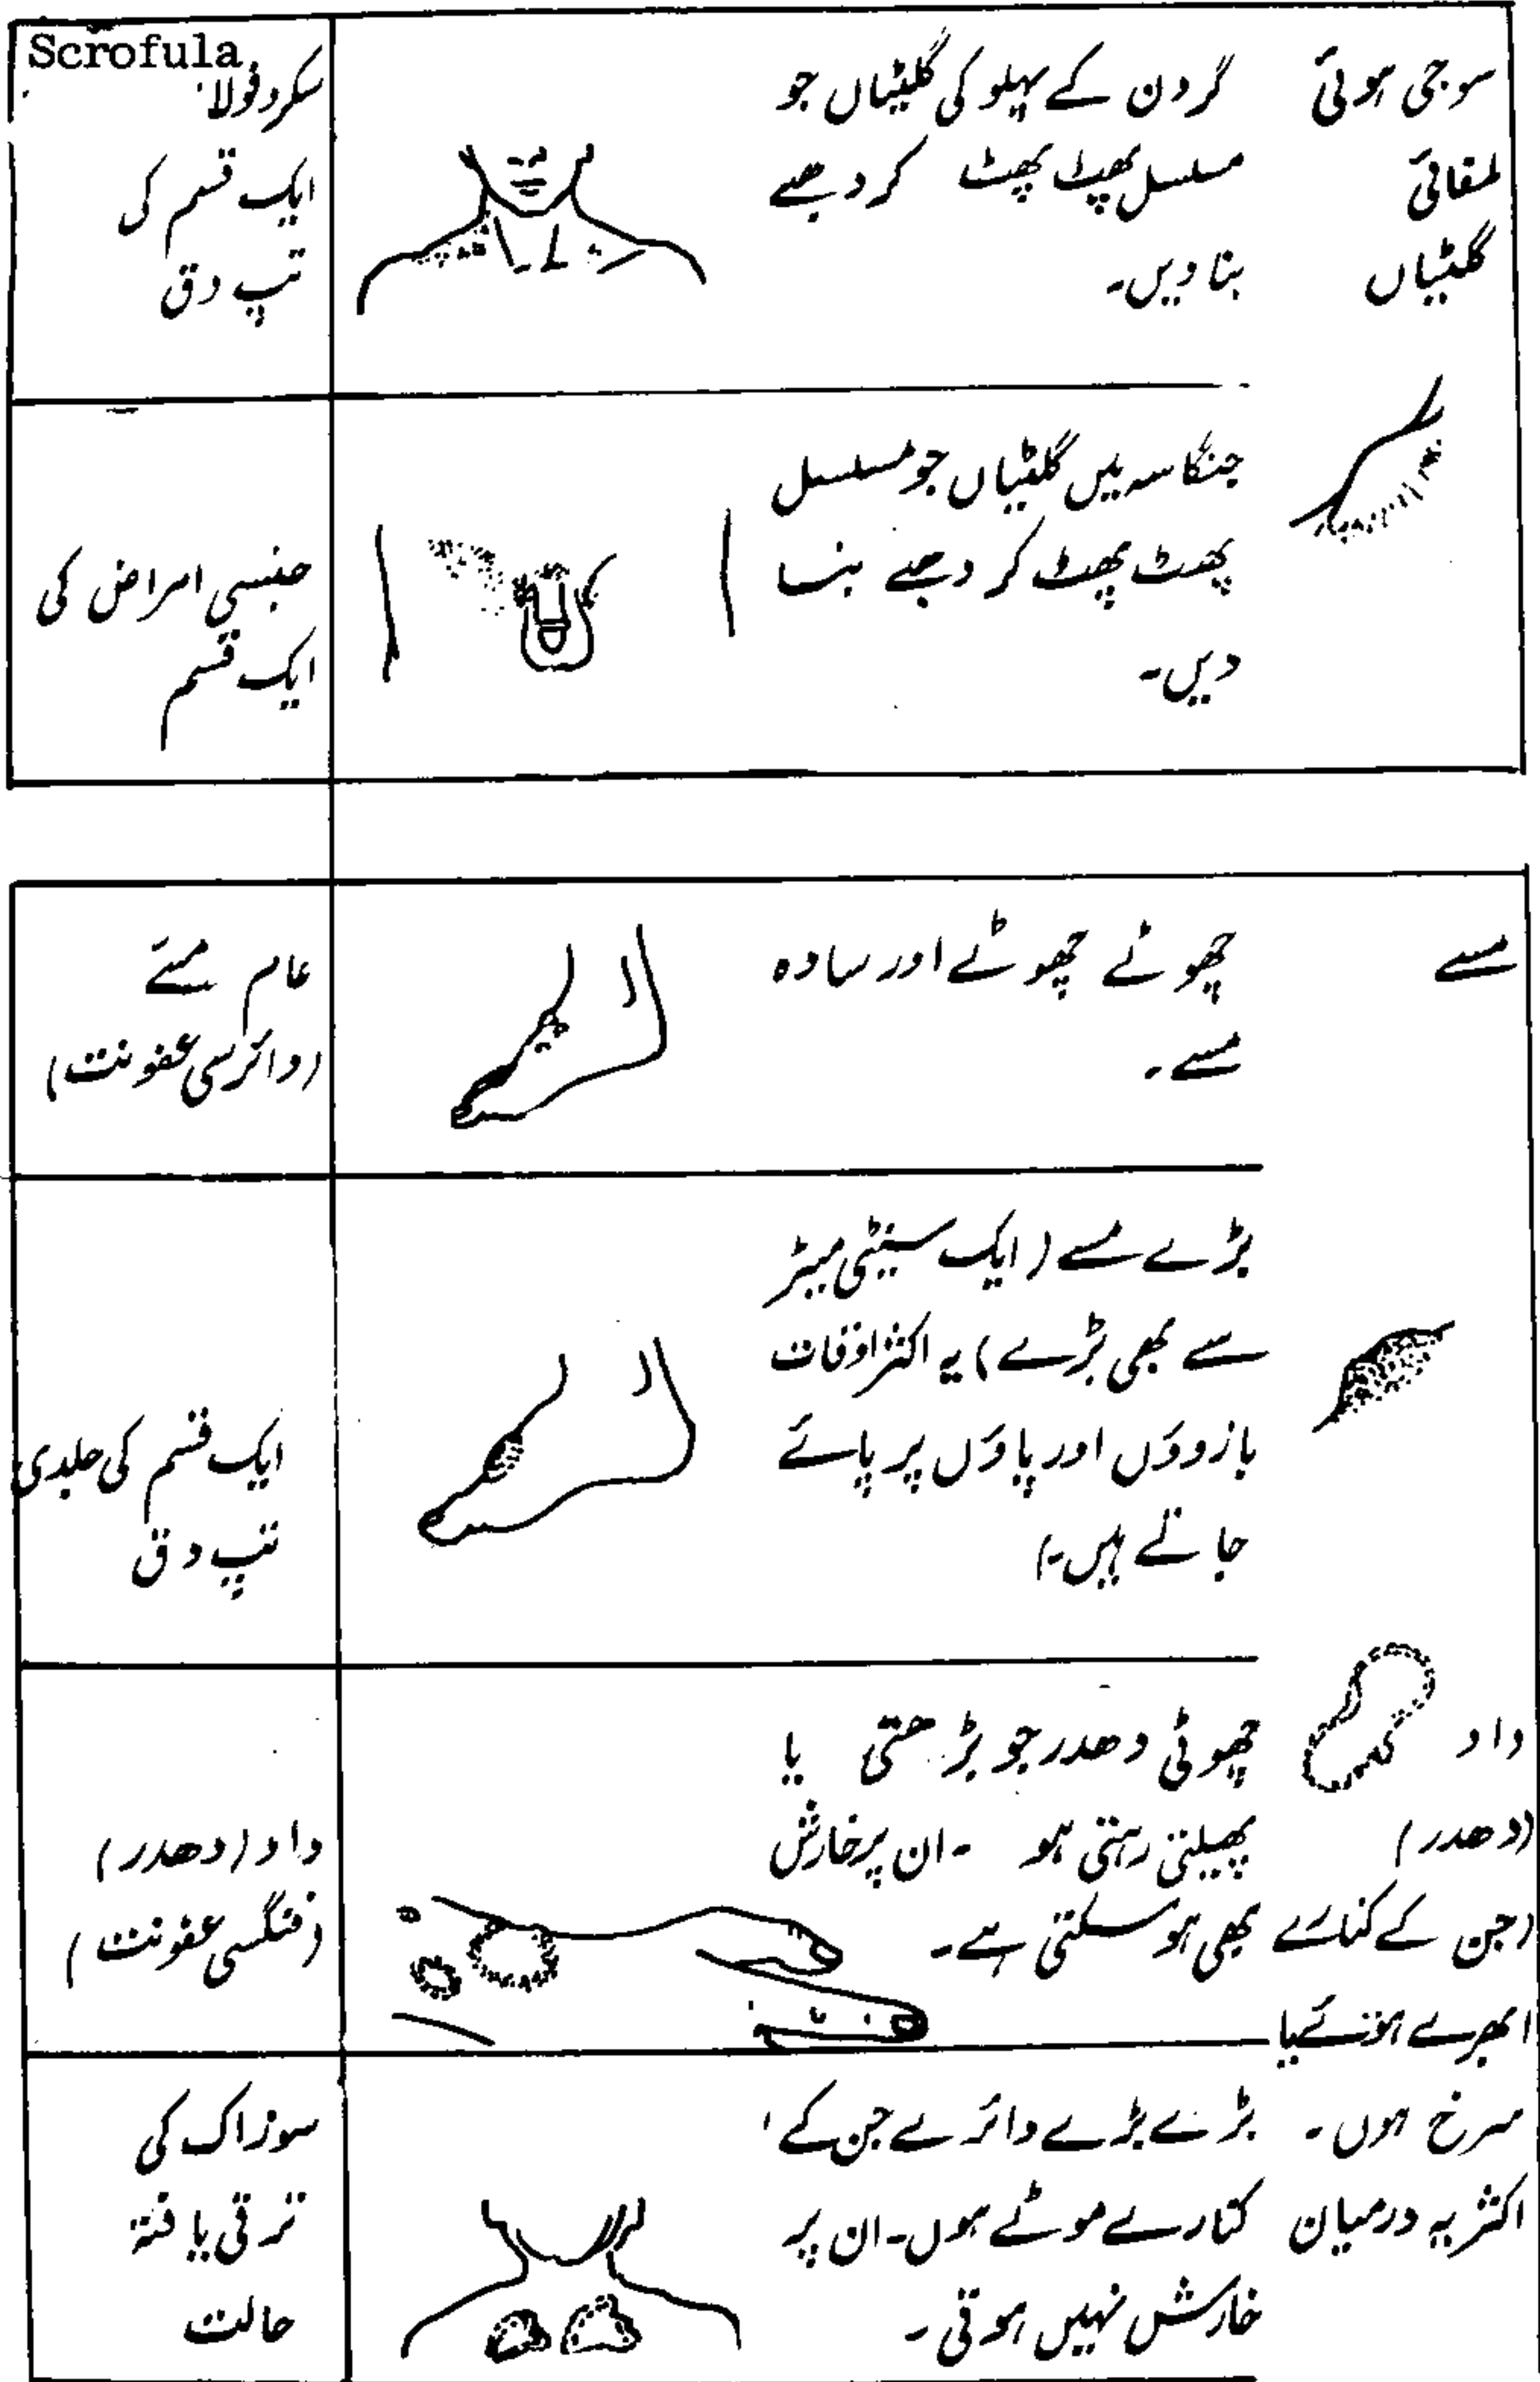 سوجی ہوئی
لمفائی
گلٹیاں
گردن کے پہلو کی گلٹیاں جو
مسلسل پھٹ پھٹ کر دھبے
بنا دیں۔
Scrofula
سکروفولا
ایک قسم کی
تپ دق
جنگاسہ میں گلٹیاں جو مسلسل
پھٹ پھٹ کر دھبے بنا
دیں۔
جنسی امراض کی
ایک قسم
مسے
چھوٹے چھوٹے اور سادہ
مسے۔
عام مسّے
(وائرسی عفونت)
بڑے مسے (ایک سینٹی میٹر
سے بھی بڑے) یہ اکثر اوقات
بازوؤں اور پاؤں پر پائے
جاتے ہیں۔)
ایک قسم کی جلدی
تپ دق
داد
(دھدر)
(جن کے کنارے
ابھرے ہوئے یا
سرخ ہوں۔
اکثر یہ درمیان
چھوٹی دھدر جو بڑھتی یا
پھیلتی رہتی ہو ۔ ان پر خارش
بھی ہو سکتی ہے۔
داد (دھدر)
(فنگسی عفونت)
بڑے بڑے دائرے جن کے
کنارے موٹے ہوں۔ ان پر
خارش نہیں ہوتی۔
سوزاک کی
ترقی یافتہ
حالت